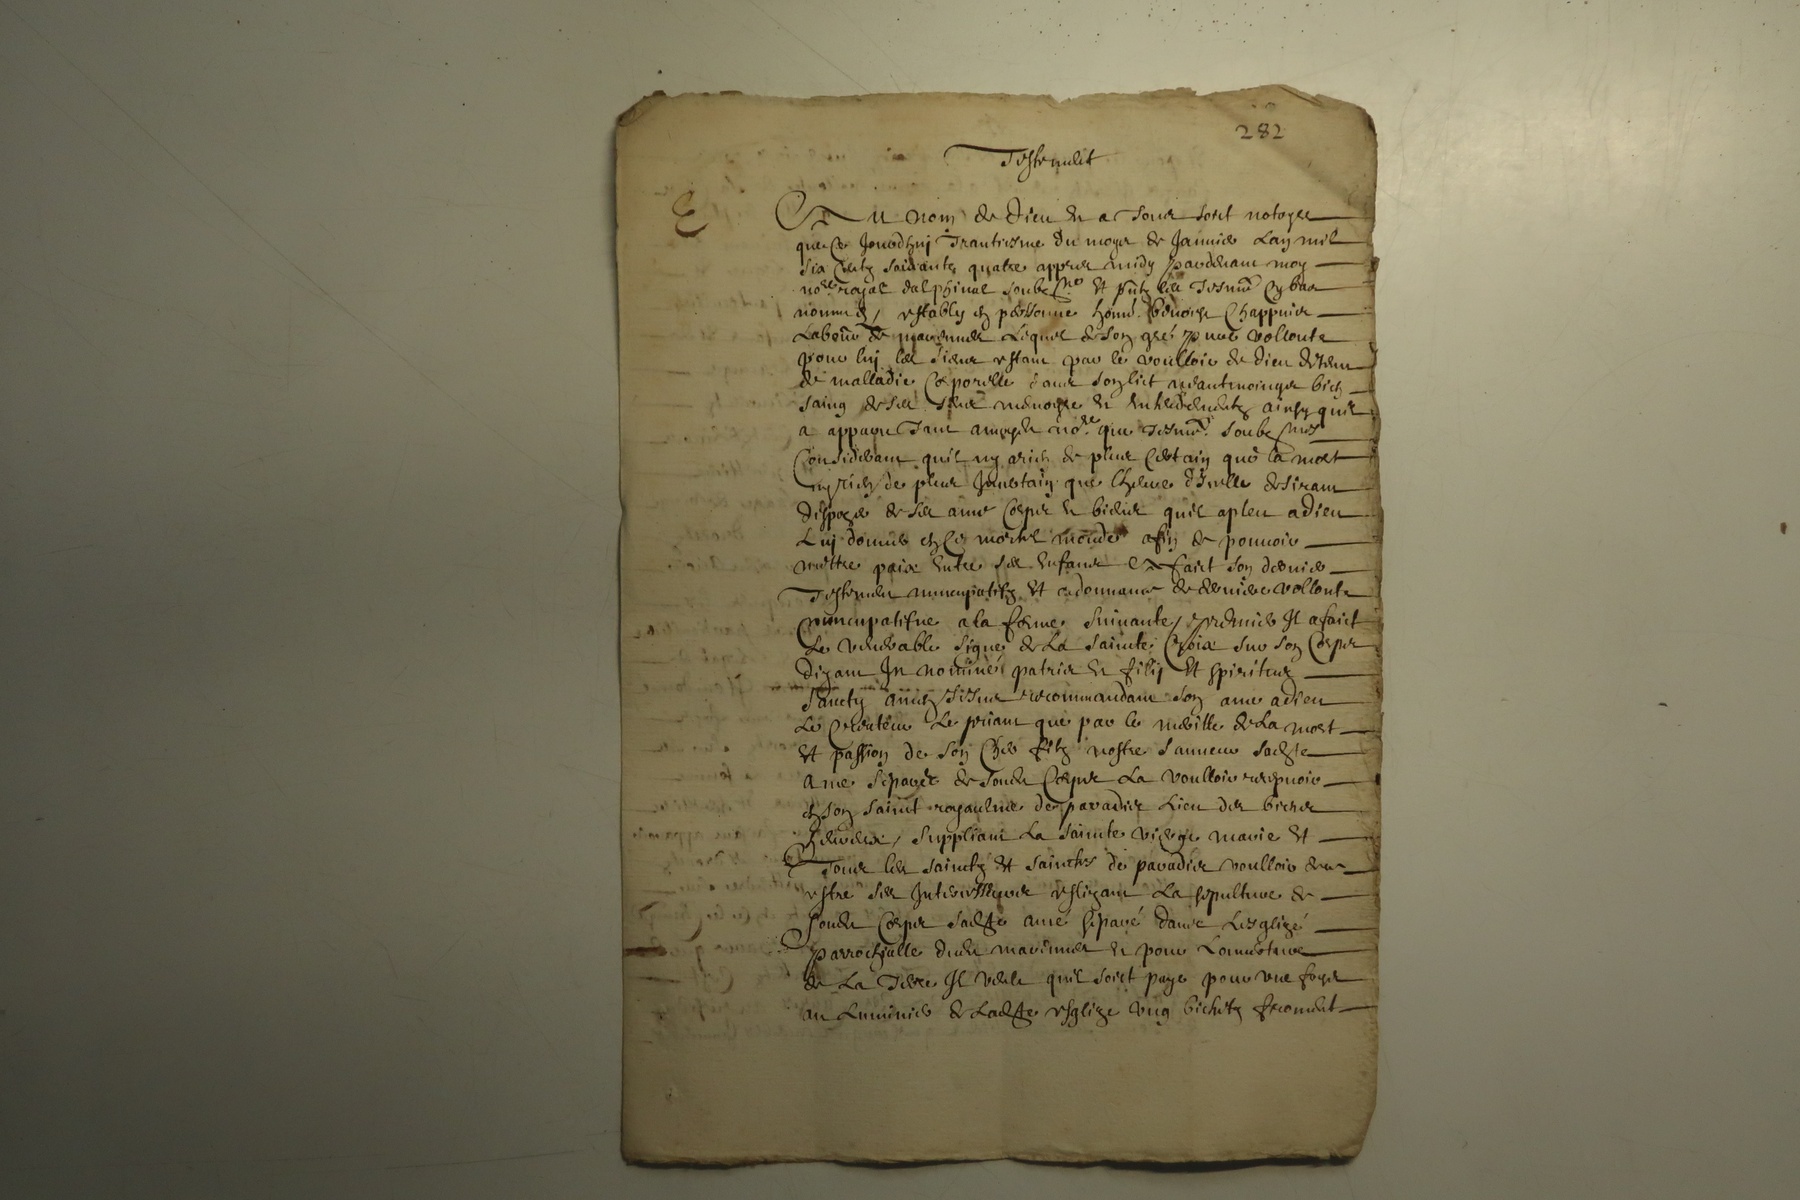 282
Testement
E
Au nom de Dieu et a tous soit notoyre
que ce jourdhuj trantiesme du moys de Janvier Lan mil
six centz soixante quatre appres midy pardevant moy
no.re royal dalphinal soubz.ne et putz les tesm. cy bas
nommes / establys en personne honn. benoist Chappuis
Labour de maximieu Lequel de son gré pure vollonte
pour luj les siens estant par le voulloir de dieu detenu
de malladie corporelle dans son lict neantmoings bien
saing de ses sens memoyre et entendementz ainsy quil
a apparu tant amoydit no.re que tesm. soubz.nes
Considerant quil ny a rien de plus certain que la mort
ny rien de plus Incertain que lheure dIcelle desirant
dispozer de ses ame corps et biens quil a pleu a dieu
Luj donner en ce mortel monde afin de pouvoir
mettre paix entre ses enfans a faict son dernier
Testement nuncupatifz et ordonnance de derniere vollonte
nuncupatifve a la forme suivante / premier Il a faict
Le venerable signe de La sainte Croix sur son Corps
dizant In nomine patris et filij et spiritus
sancty amen recommandant son ame a dieu
Le Createur Le priant que par le meritte de La mort
et passion de son cher filz nostre sauveur sadte
ame separée de sondt Corps La voulloir recepvoir
en son saint royaulme de paradis Lieu des biens
heureux / suppliant La sainte vierge marie et
Tous les sainctz et sainctes de paradis voulloir
estre ses Intercesseurs eslizant La sepulture de
sondt Corps sadte ame separé dans Lesglize
parrochialle dudt maximieu et pour Louverture
de La terre Il veult quil soict paye pour une foys
au Luminier de Ladte esglize ung bichetz froment